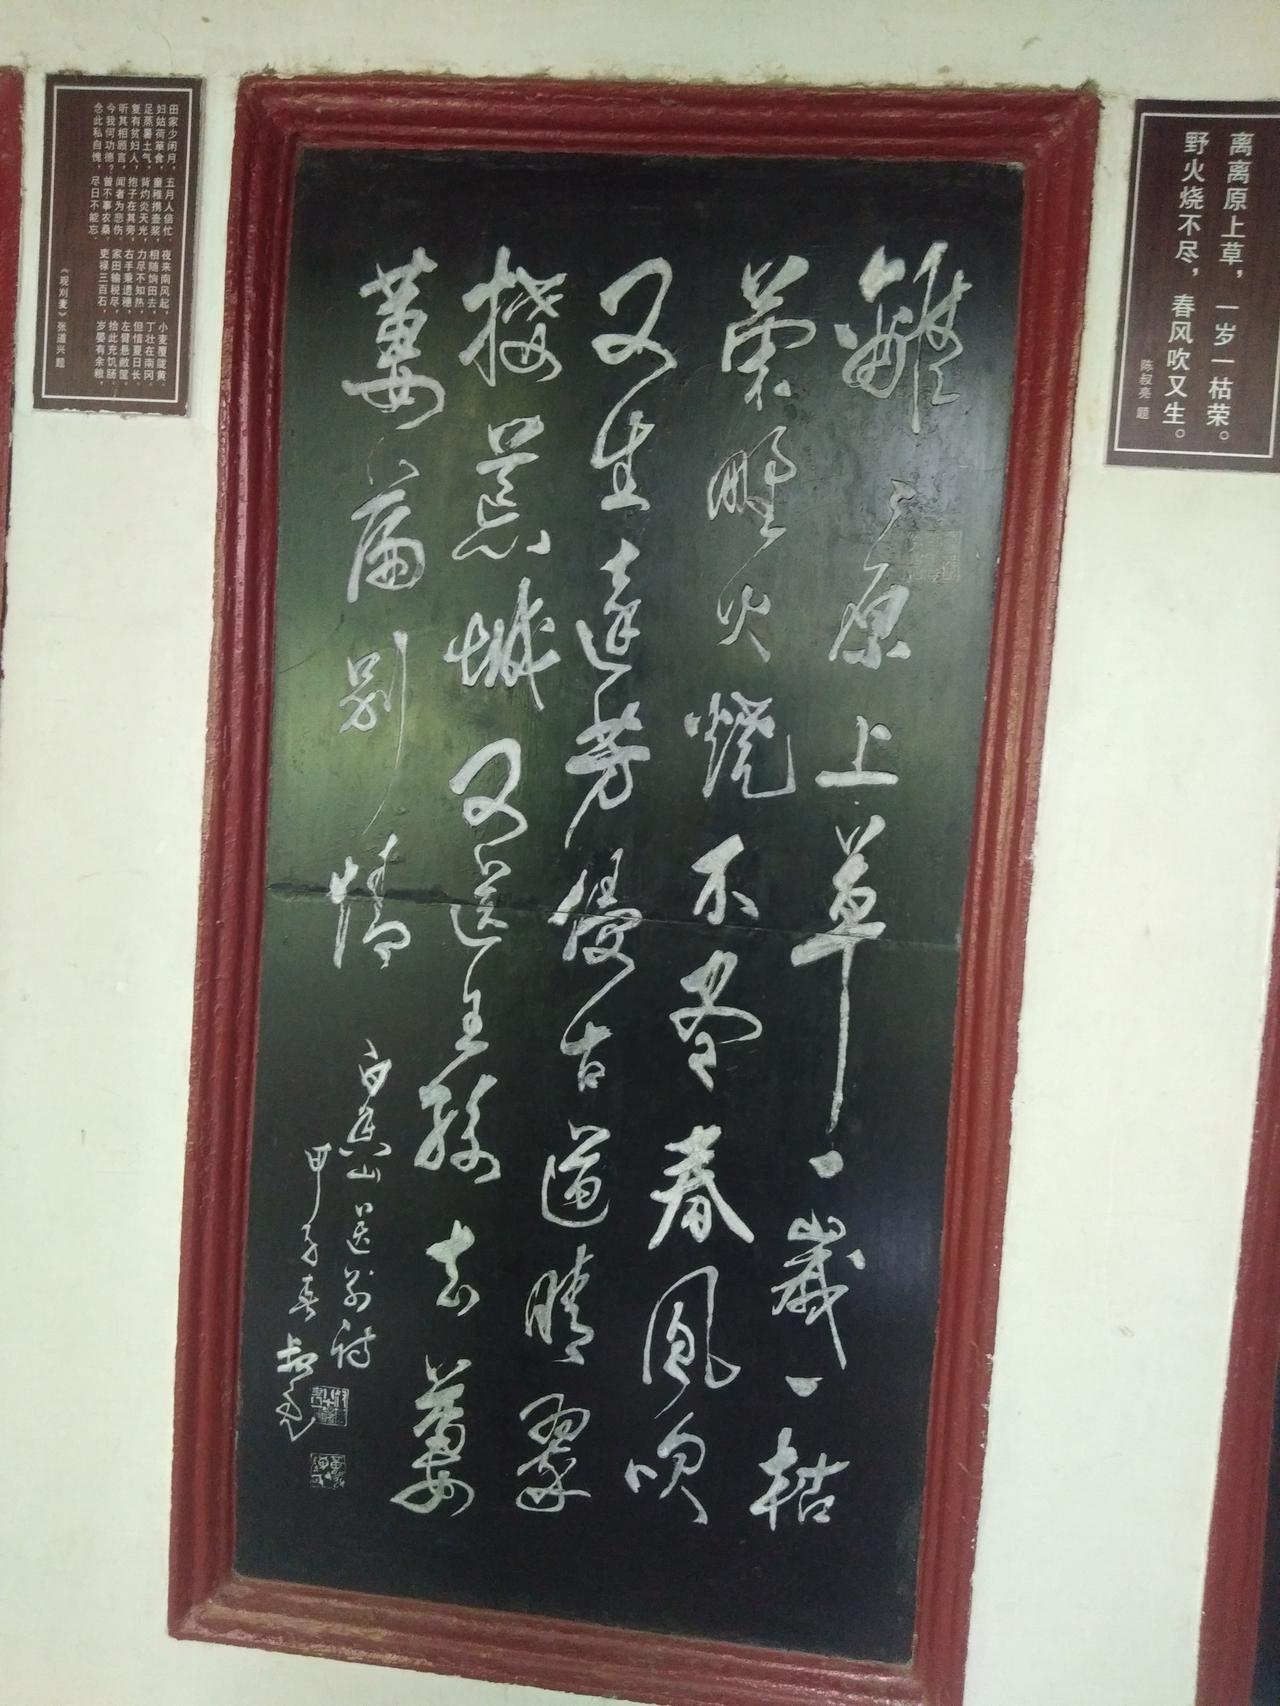 离离原上草，一岁一枯荣。
野火烧不尽，春风吹又生。
陈叔亮 题
離〻原上草一歲一枯
榮野火燒不盡春風吹
又生遠芳侵古道晴翠
接荒城又送王孫去萋
萋滿別情
白香山送别詩
甲子春 叔亮
田家少闲月，五月人倍忙。夜来南风起，小麦覆陇黄。
妇姑荷箪食，童稚携壶浆，相随饷田去，丁壮在南冈。
足蒸暑土气，背灼炎天光，力尽不知热，但惜夏日长。
复有贫妇人，抱子在其旁，右手秉遗穗，左臂悬敝筐。
听其相顾言，闻者为悲伤。家田输税尽，拾此充饥肠。
今我何功德？曾不事农桑，吏禄三百石，岁晏有余粮，
念此私自愧，尽日不能忘。
《观刈麦》张道兴 题